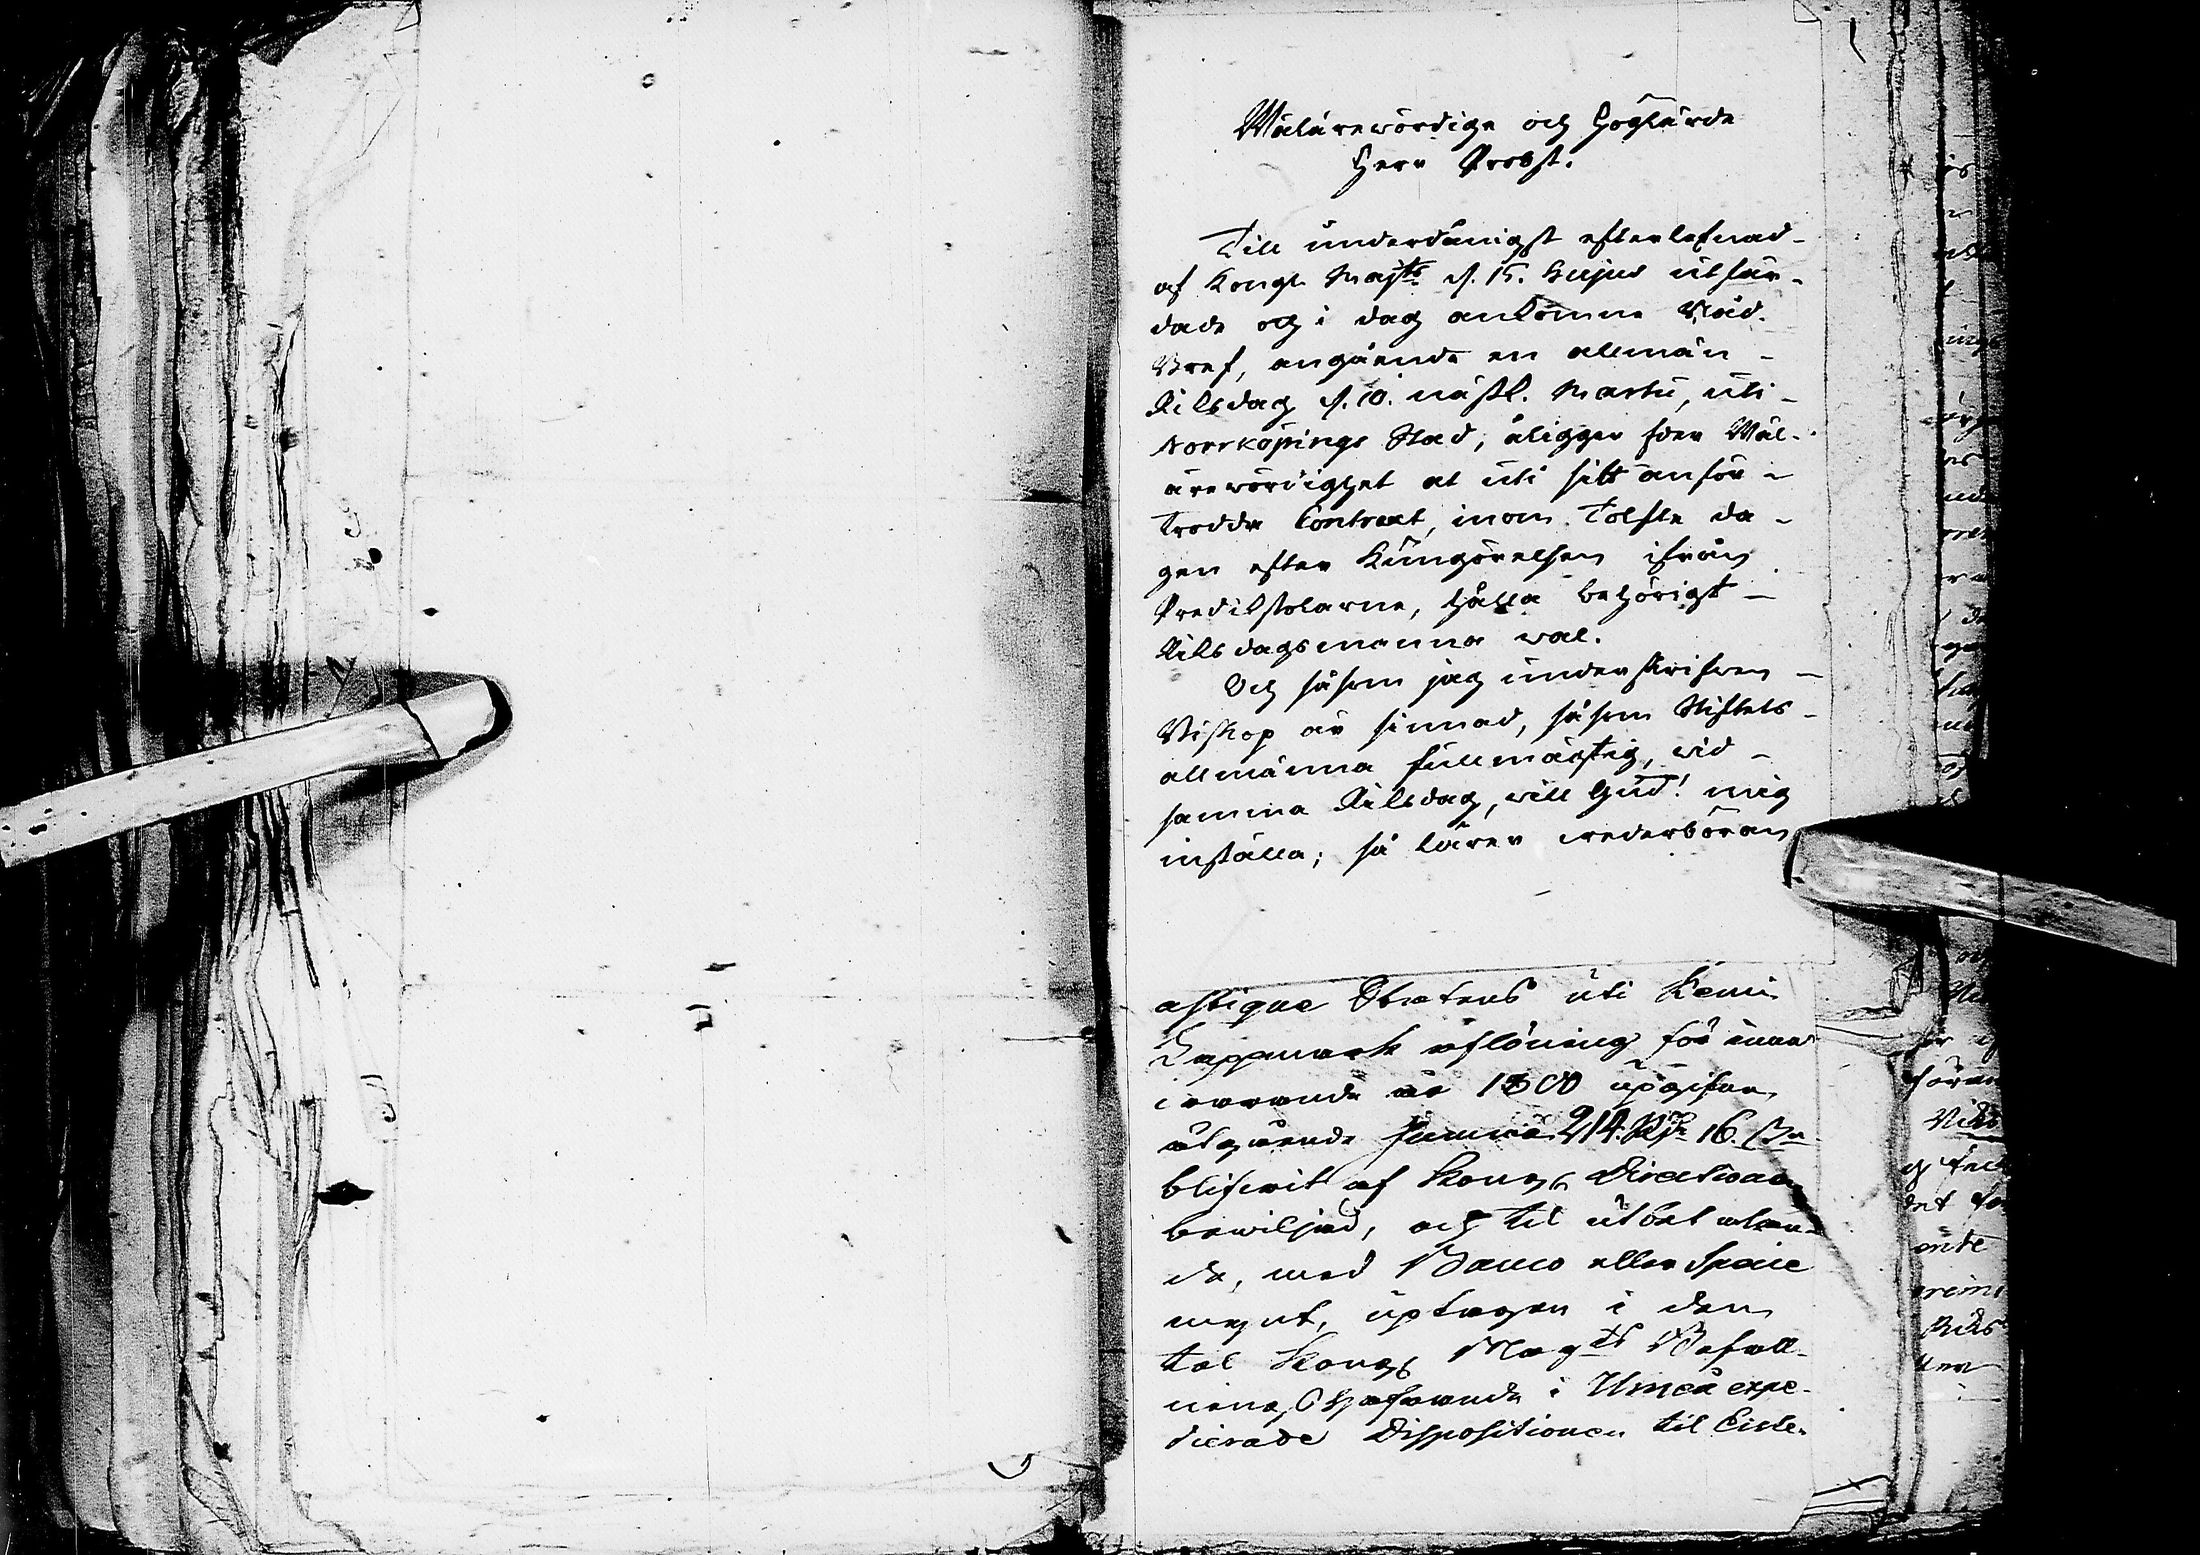 Wälärewördige och Höglärde
Herr Probst.
Till underdånigst efterlefnad
af Kongl. Majts d. 15. hujus utfär-
dade och i dag ankomne Nåd.
Bref, angående en allmän
Riksdag d. 10. nästk. Martii, uti
Norrköpings Stad, åligger Eder Wäl-
ärewördighet at uti sitt anför-
trodde Contract, inom Tolfte da-
gen efter Kungörelsen ifrån
Predikstolarne, hålla behörigt
Riksdagsmanna wal.
Och såsom jag underskrifwen
Biskop är sinnad, såsom Stiftets
allmänna fullmägtig, wid
samma Riksdag, will Gud! mig
inställa; så lärer wederböran
astique Statens uti Kemi
Lappmark aflöning för inne
warande år 1800 upgifne
utgående Summa 214. Rdr 16. s
blifwit af Kongl. Directionen
bewiljad, och til utbetalan-
de, med Banco eller Specie
mynt, uptagen i den
til Kongl. Majts Befall-
ningshafwande i Umeå expe-
dierade Dispositionen til